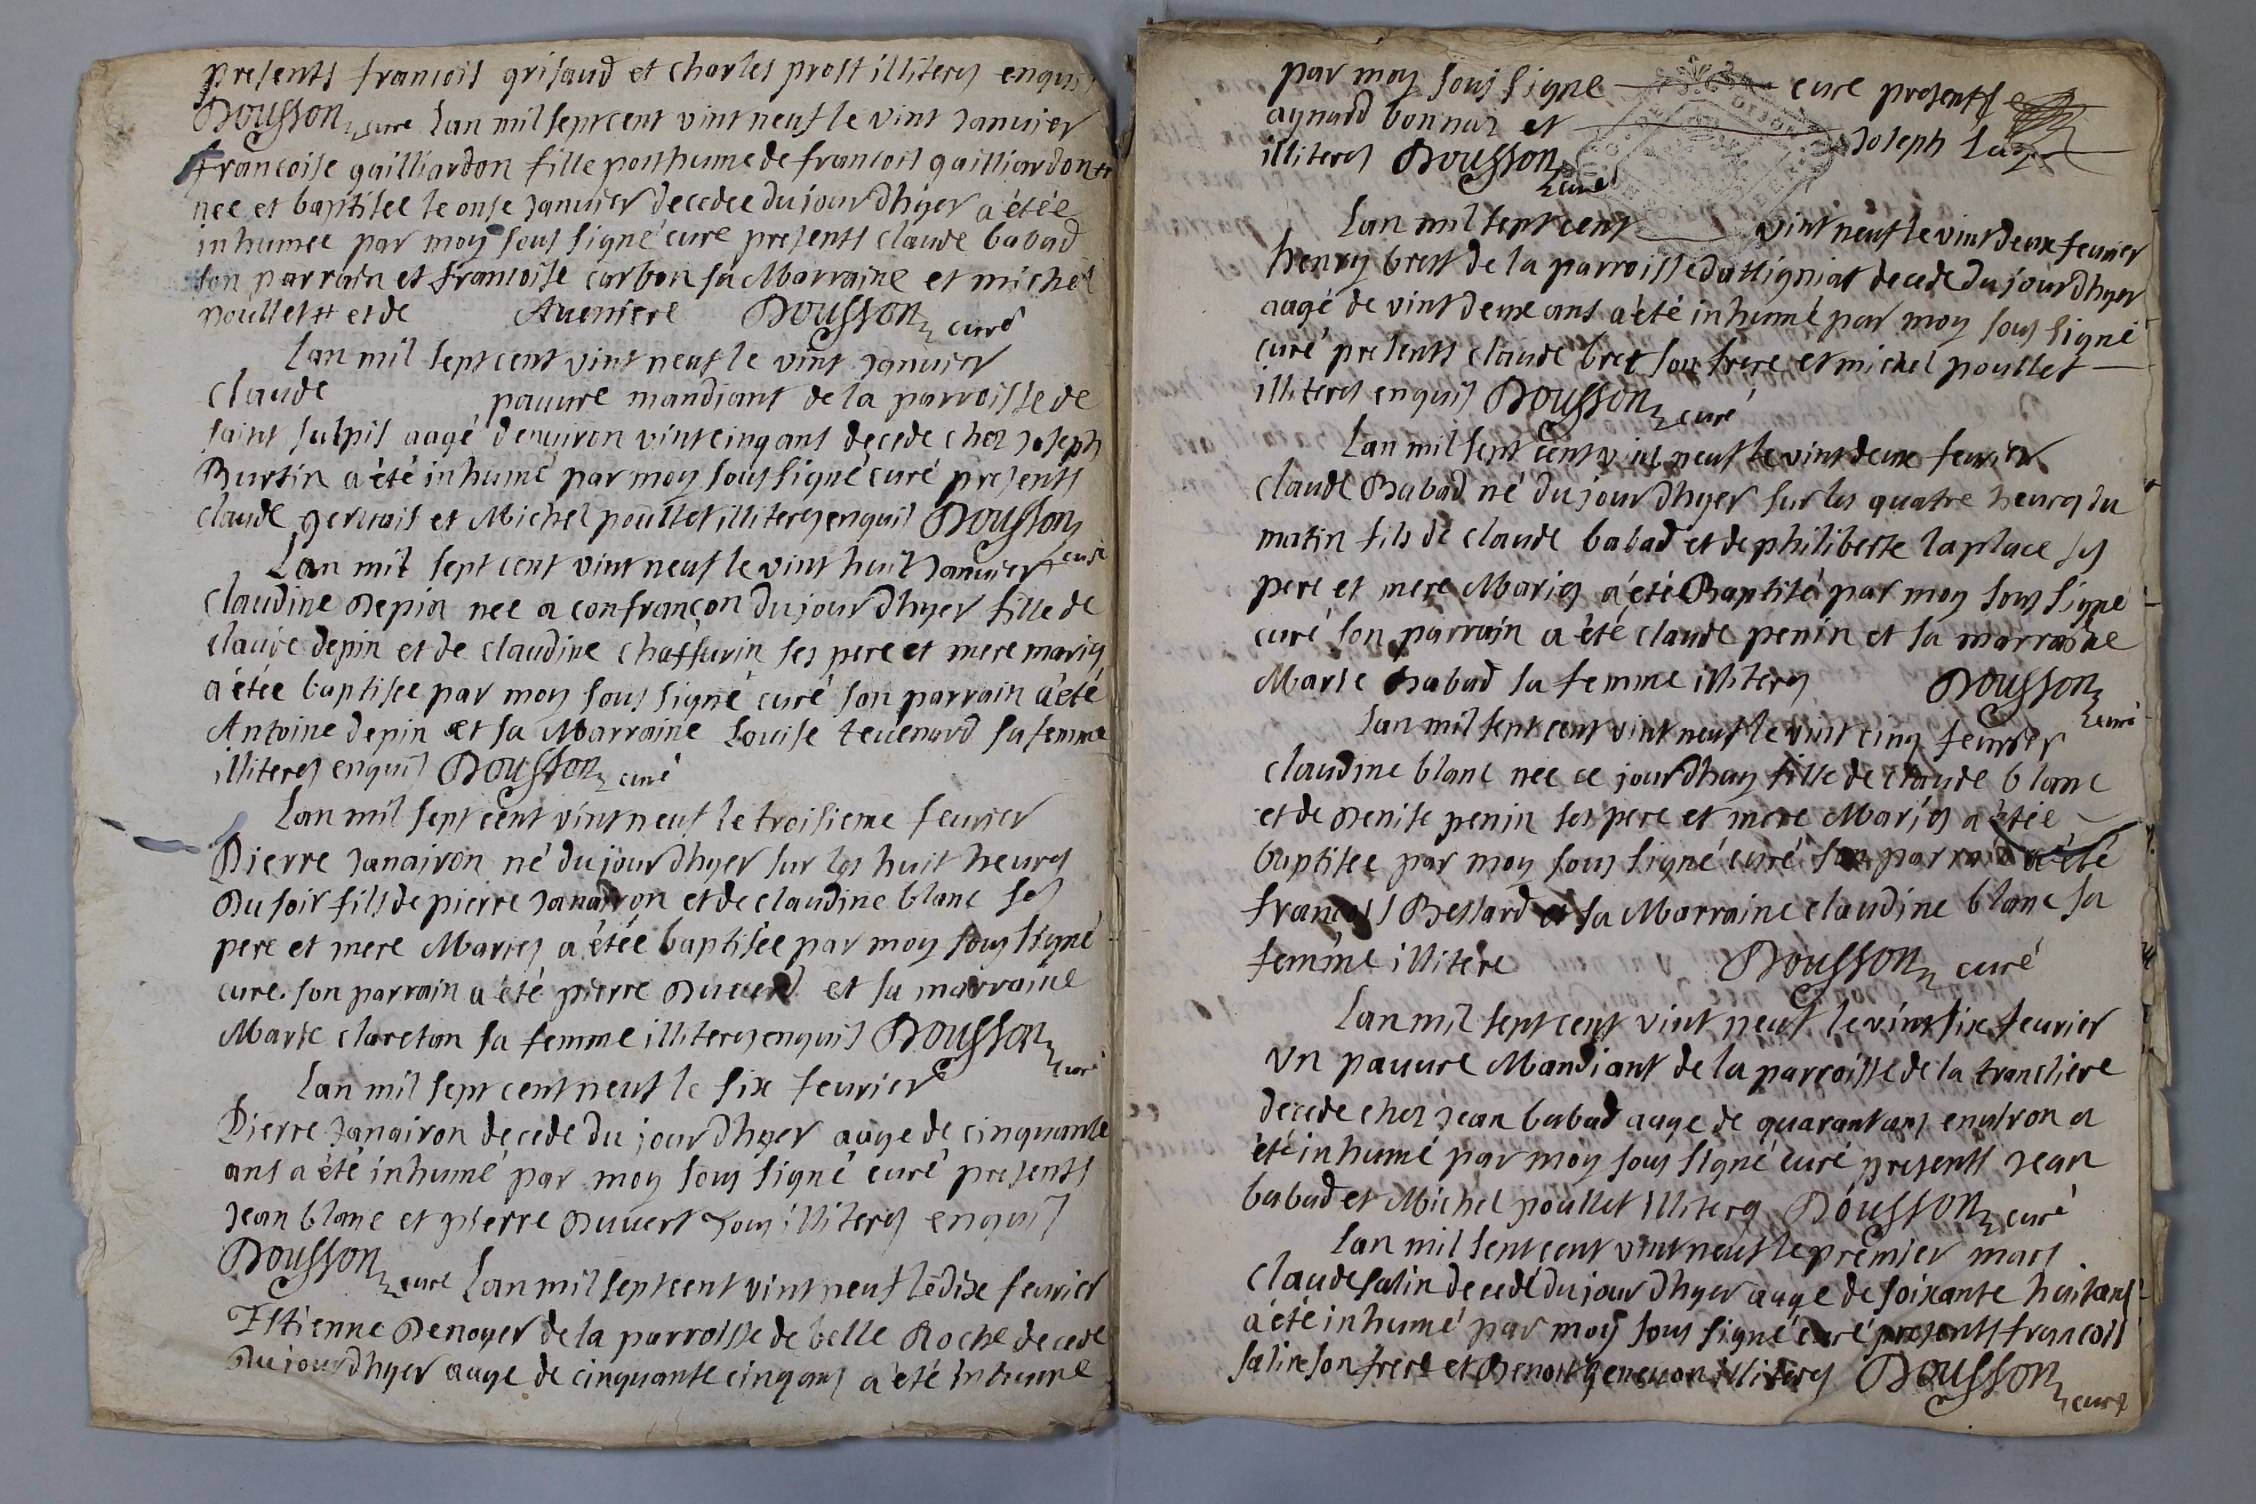 presents francois grisaud et charles prost illiterés enquis
Dousson curé Lan mil sept cent vint neuf le vint Janvier
francoise gailliardon fille posthume de francois gailliardon ++
nee et baptisee le onse Janvier decedee du jour dhyer a étée
inhumee par moy sous signé curé presents claude babad
son parrain et francoise carbon sa Marraine et michel
Poullet ++ et de Aveniere Dousson curé
Lan mil sept cent vint neuf le vint Janvier
Claude pauvre mandiant de la parroisse de
saint sulpis aagé denviron vint cinq ans decede chez Joseph
Burtin a été inhumé par moy sous signé curé presents
claude gervais et Michel poullet illiterés enquis Dousson
curé
Lan mil sept cent vint neuf le vint huit Janvier
Claudine Depin nee a confrançon du jour dhyer fille de
claude depin et de claudine chaffurin ses pere et mere mariés
a étée baptisee par moy sous signé curé son parrain a été
Antoine depin et sa Marraine Louise tevenard sa femme
illiterés enquis Dousson curé
Lan mil sept cent vint neuf le troisieme fevrier
Pierre Janairon né du jour dhyer sur les huit heures
Du soir fils de pierre Janairon et de claudine blanc ses
pere et mere Mariés a étée baptisée par moy sous signé
curé. son parrain a été pierre Duverd et sa marraine
Marie claretan sa femme illiterés enquis Dousson
curé
Lan mil sept cent neuf le six fevrier
Pierre Janairon decede du jour dhyer aage de cinquante
ans a été inhumé par moy sous signé curé presents
Jean blanc et pierre Duvert tous illiterés enquis
Dousson curé Lan mil sept cent vint neuf le dix fevrier
Estienne Denoyer de la parroisse de belle Roche decede
Du jour dhyer aage de cinquante cinq ans a été inhumé
par moy sous signé curé presents
aynard bonnaz et Joseph
illiterés Dousson
curé
Lan mil sept cent vint neuf le vint deux fevrier
henry bret de la parroisse dattigniat decede du jour dhyer
aagé de vint deux ans a été inhumé par moy sous signé
curé presents claude bret son frere et michel poullet
illiterés enquis Dousson curé
Lan mil sept cent vint neuf le vint deux fevrier
Claude Babad né du jour dhyer sur les quatre heures du
matin fils de claude babad et de philiberte laplace ses
pere et mere Mariés a été Baptisé par moy sous signé
curé son parrain a été claude penin et sa marraine
Marie Babad sa femme illiterés Dousson
curé
Lan mil sept cent vint neuf le vint cinq fevrier
claudine blanc nee ce jourdhuy fille de claude blanc
et de Denise penin ses pere et mere Mariés a étée
baptisee par moy sous signé curé son parrain a été
francois Bessard et sa Marraine claudine blanc sa
femme illitere Dousson curé
Lan mil sept cent vint neuf le vint six fevrier
Un pauvre Mandiant de la parroisse de la trancliere
decede chez Jean babad aage de quarant ans environ a
été inhumé par moy sous signé curé presents Jean
babad et Michel poullet illiterés Dousson curé
Lan mil sept cent vint neuf le premier mars
Claude salin decedé du jour dhyer aage de soixante huit ans
a été inhumé par moy sous signé curé presents francois
salin son frere et Benoit genevon illiterés Dousson
curé